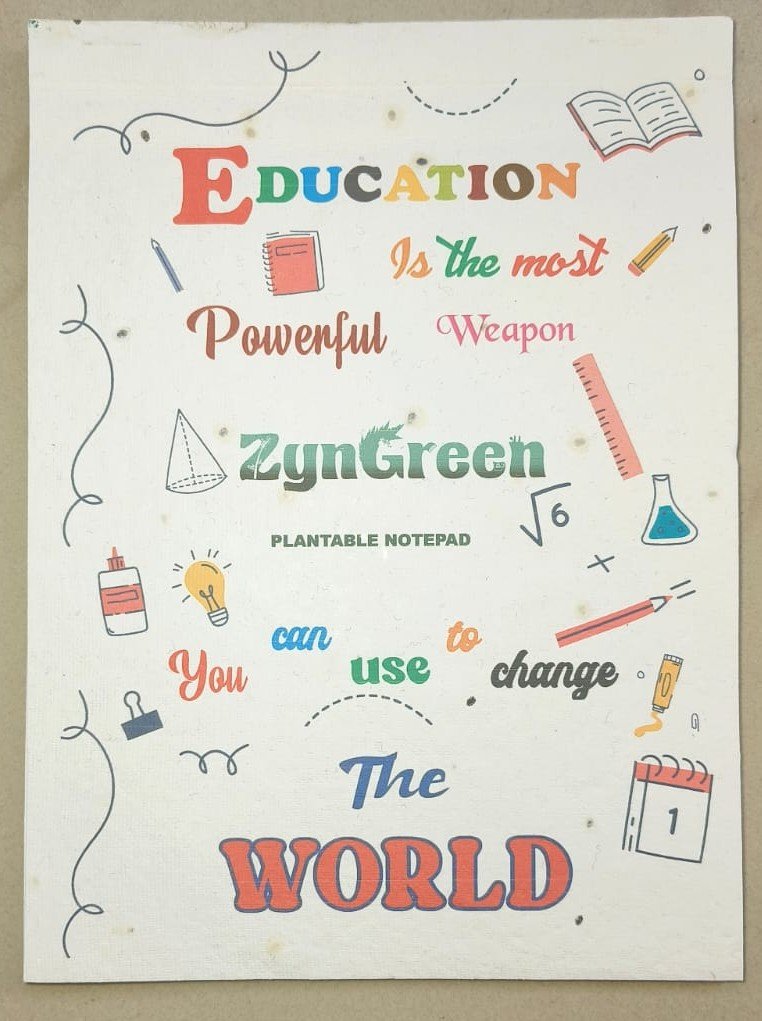 EDUCATION
Is the most
Powerful Weapon
ZynGreen
√6
PLANTABLE NOTEPAD
can to
You use change
The
1
WORLD